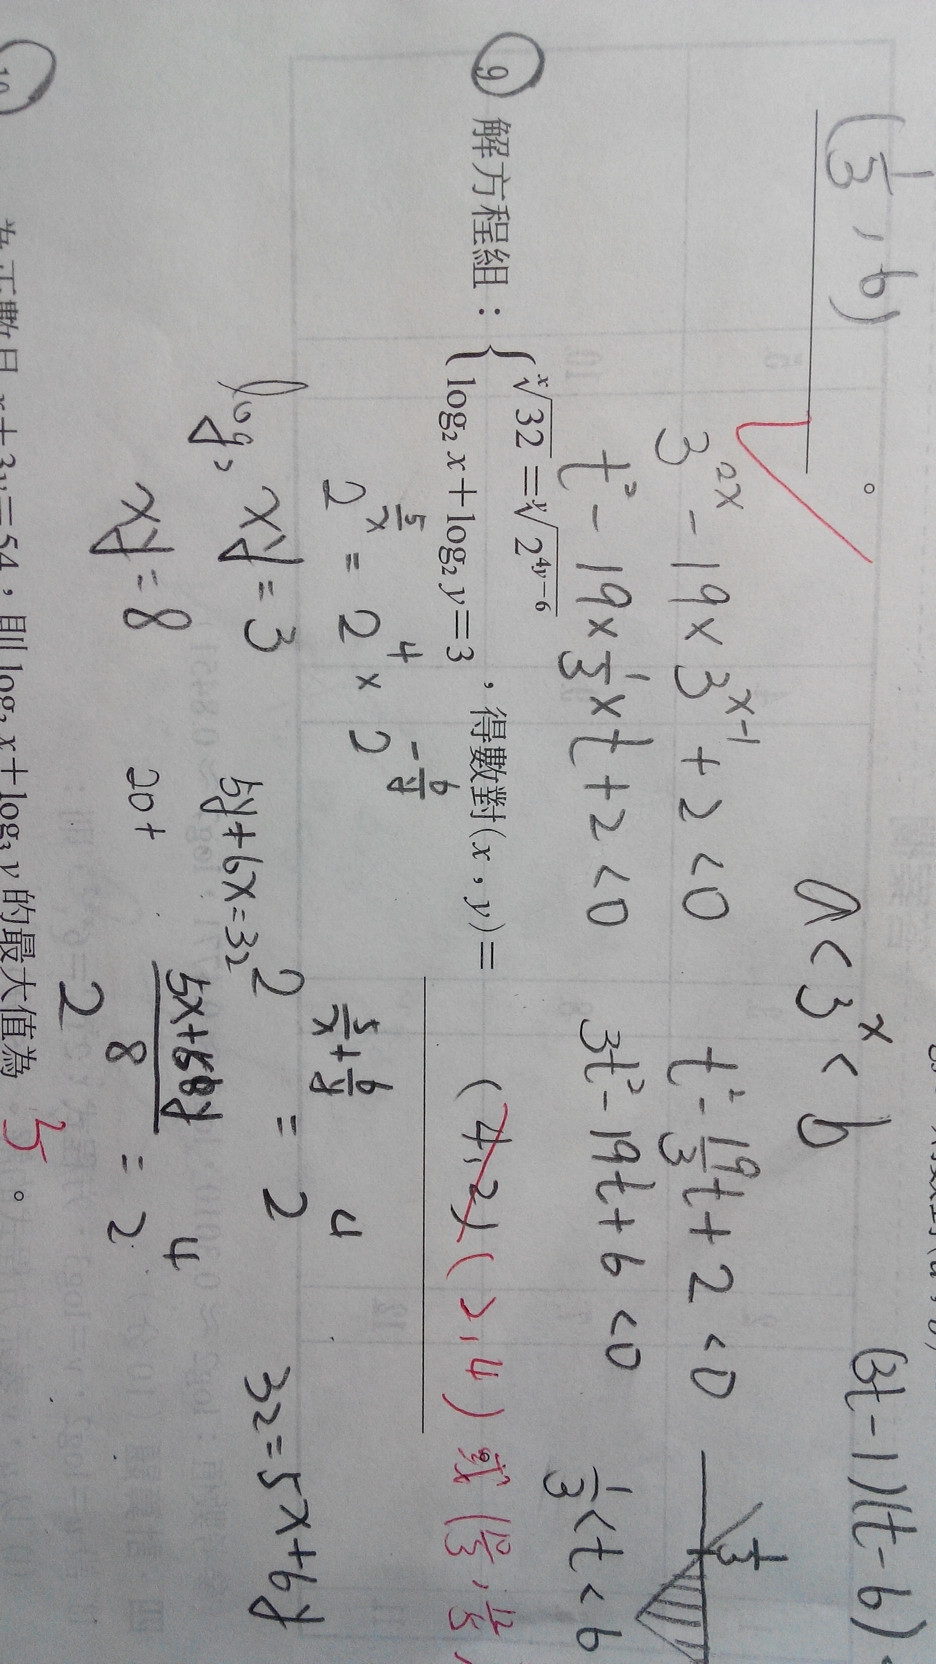 (1/3, 6)
a < 3^x < b
(3t-1)(t-6)
3^{2x} - 19 × 3^{x-1} + 2 < 0
t² - 19/3 t + 2 < 0
1/3
t² - 19 × 1/3 × t + 2 < 0
3t² - 19t + 6 < 0
1/3 < t < 6
9 解方程組：{ ˣ√32 = ʸ√2^{4y-6}
log₂x + log₂y = 3 ，得數對(x，y)= (4,2) (2,4) 或 (10/3, 12/5)
2^{5/x} = 2^4 × 2^{-6/y}
2^{5/x + 6/y} = 2^4
log₂ xy = 3
5y + 6x = 32
32 = 5x + 6y
xy = 8
20+
2^{(5x+6y)/8} = 2^4
10
為正數且 x + 3y = 54，則 log₃x + log₃y 的最大值為 5 。